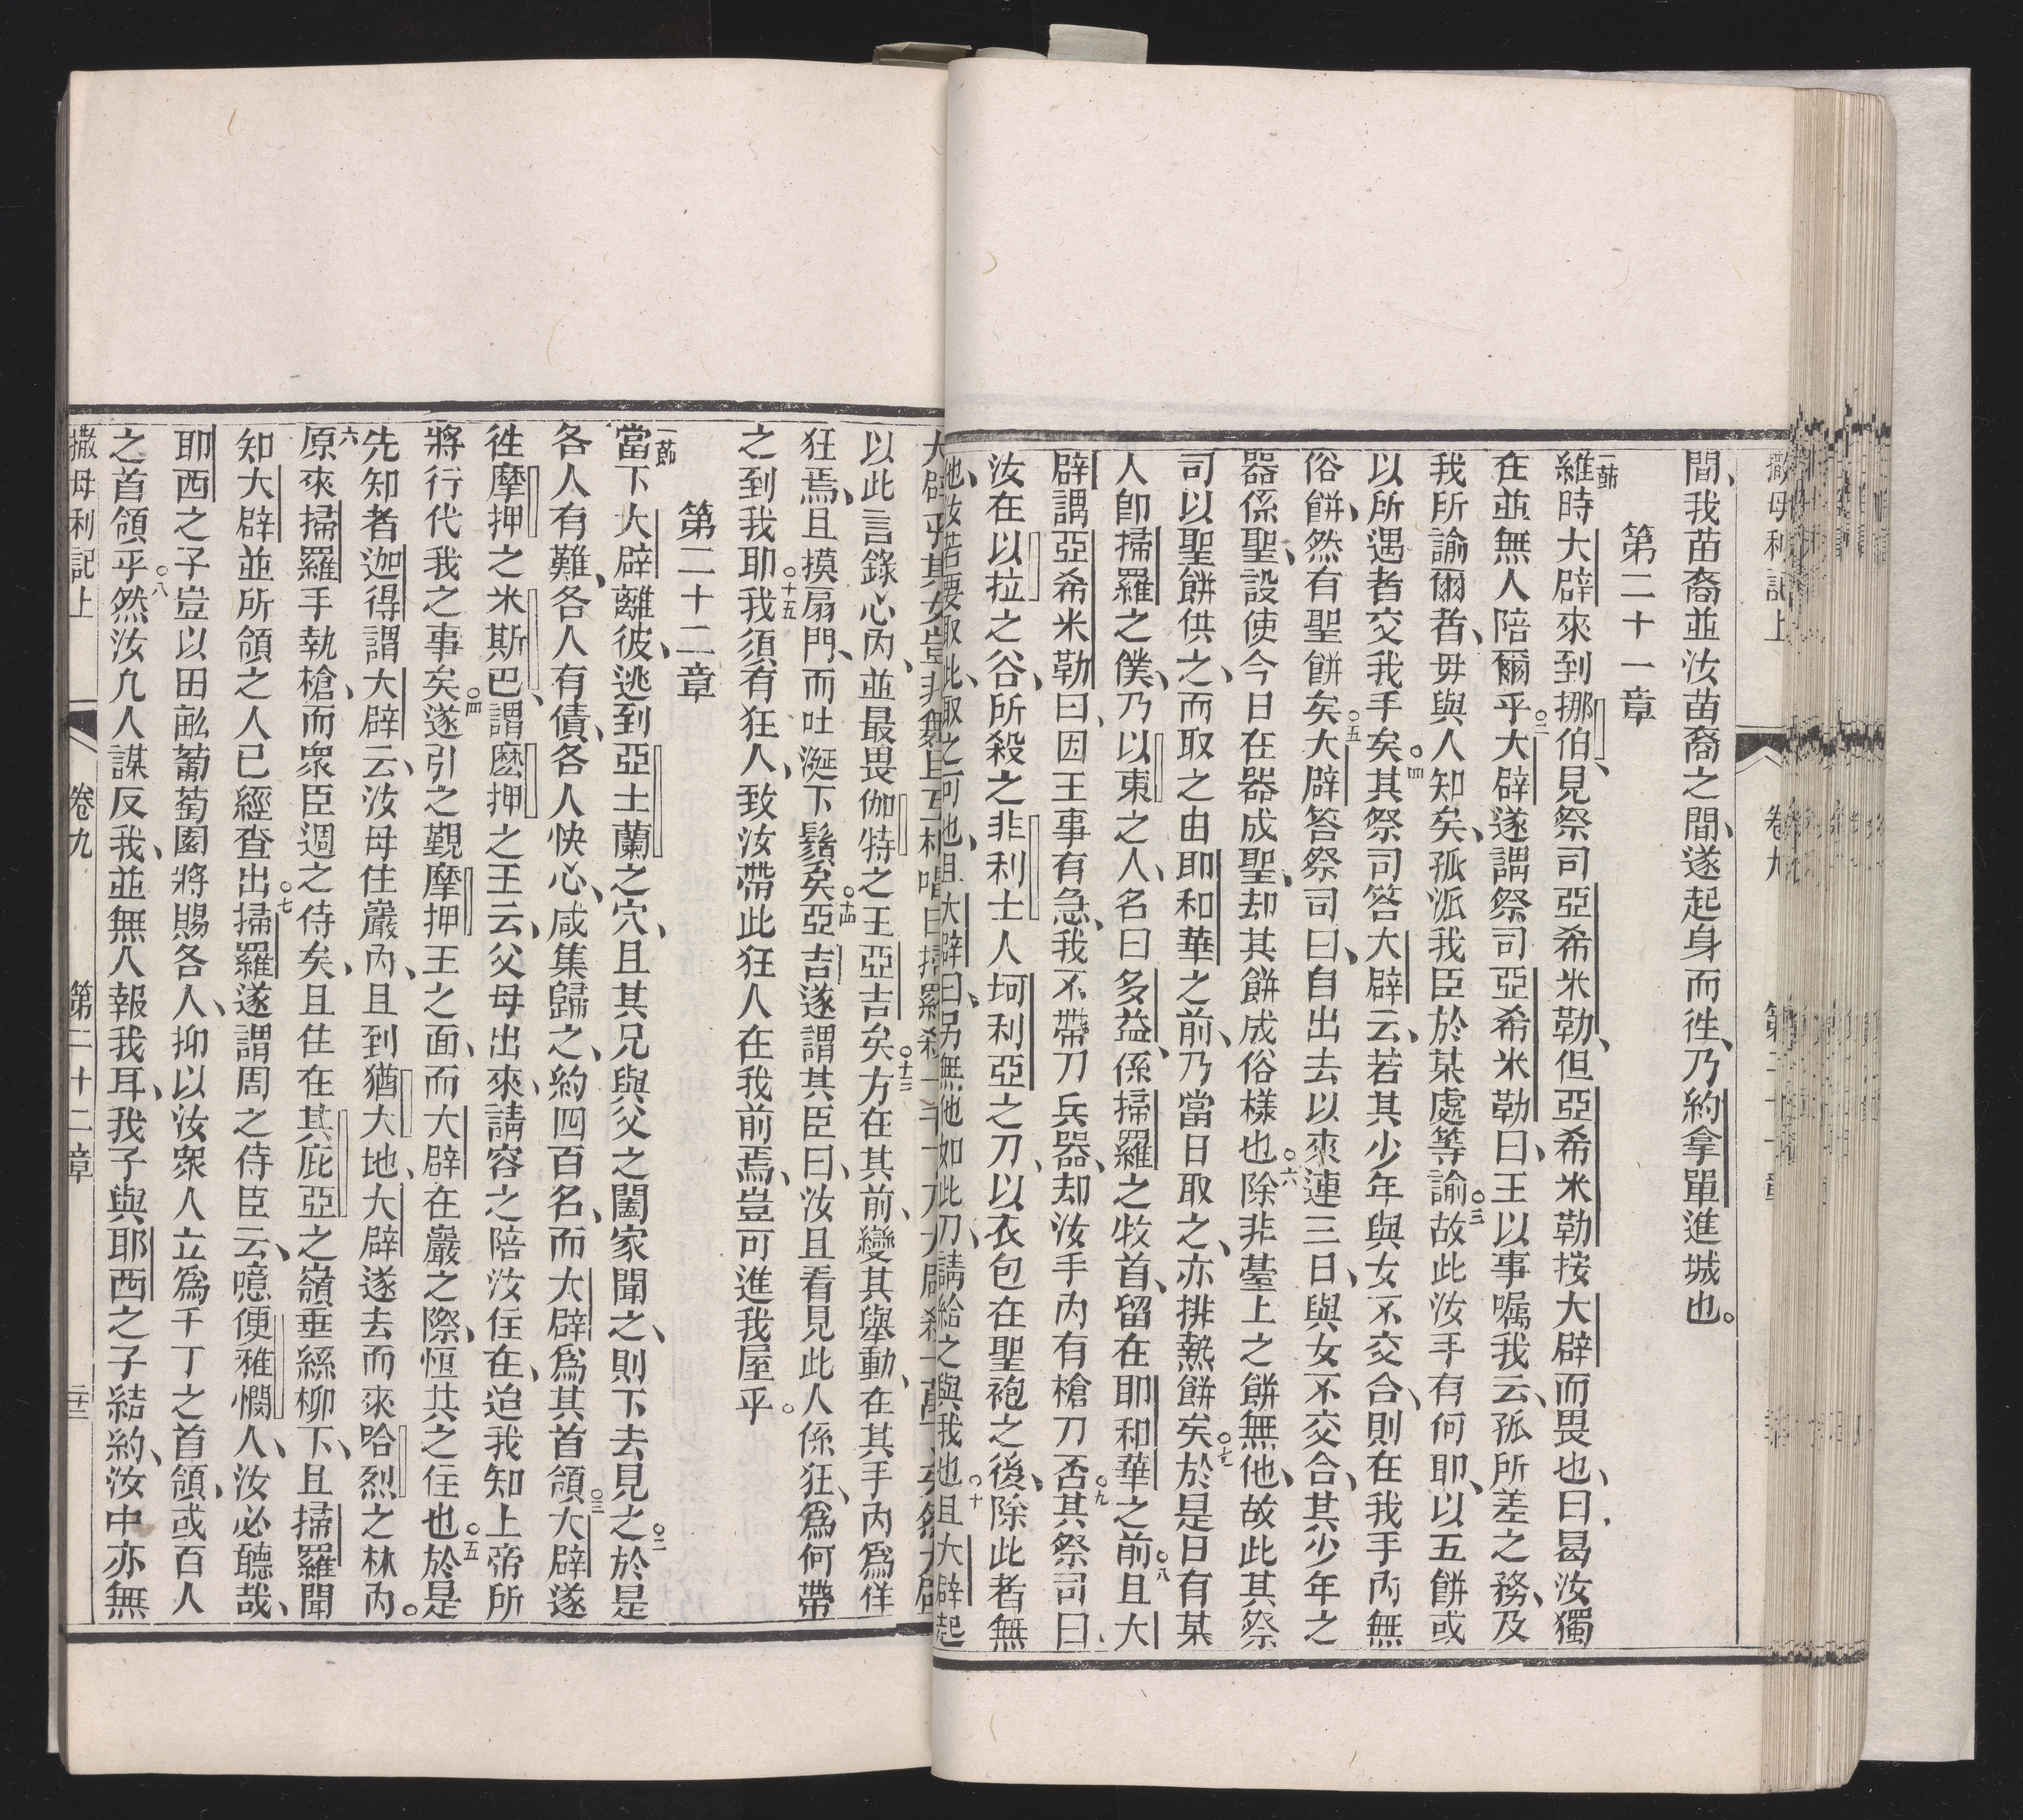 撒母利記上 卷九 第二十一章
間、我苗裔並汝苗裔之間、遂起身而徃、乃約拿單進城也。
第二十一章
一節維時大辟來到挪伯、見祭司亞希米勒、但亞希米勒按大辟而畏也、曰曷汝獨
在並無人陪爾乎○二大辟遂謂祭司亞希米勒曰、王以事嘱我云、孤所差之務、及
我所諭爾者、毋與人知矣、孤派我臣於某處等諭○三故此汝手有何耶、以五餅或
以所遇者交我手矣○四其祭司答大辟云、若其少年與女不交合、則在我手內無
俗餅、然有聖餅矣○五大辟答祭司曰、自出去以來連三日、與女不交合、其少年之
器係聖、設使今日在器成聖、却其餅成俗樣也○六除非臺上之餅無他、故此其祭
司以聖餅供之、而取之由耶和華之前、乃當日取之、亦排熱餅矣○七於是日有某
人卽掃羅之僕、乃以東之人、名曰多益、係掃羅之牧首、留在耶和華之前○八且大
辟謂亞希米勒曰、因王事有急、我不帶刀兵器、却汝手內有槍刀否○九其祭司曰、
汝在以拉之谷、所殺之非利士人坷利亞之刀、以衣包在聖袍之後、除此者無
他、汝若要取此、取之可也、且大辟曰、另無他如此刀、請給之與我也○十且大辟起
以此言錄心內、並最畏伽特之王亞吉矣○十三方在其前、變其舉動、在其手內爲佯
狂焉、且摸扇門、而吐涎下鬚矣○十四亞吉遂謂其臣曰、汝且看見此人係狂、爲何帶
之到我耶○十五我須有狂人、致汝帶此狂人在我前焉、豈可進我屋乎。
第二十二章
一節當下大辟離彼、逃到亞土蘭之穴、且其兄與父之闔家聞之、則下去見之○二於是
各人有難、各人有債、各人怏心、咸集歸之、約四百名、而大辟爲其首領○三大辟遂
徃摩押之米斯巴、謂麼押之王云、父母出來、請容之陪汝住在、迨我知上帝所
將行代我之事矣○四遂引之覲摩押王之面、而大辟在巖之際、恒共之住也○五於是
先知者迦得謂大辟云、汝毋住巖內、且到猶大地、大辟遂去而來哈烈之林內。
六原來掃羅手執槍、而眾臣週之侍矣、且住在其庇亞之嶺垂絲柳下、且掃羅聞
知大辟並所領之人已經查出○七掃羅遂謂周之侍臣云、噫便稚憫人、汝必聽哉、
耶西之子豈以田畝葡萄園將賜各人、抑以汝眾人立爲千丁之首領、或百人
之首領乎○八然汝凡人謀反我、並無人報我耳、我子與耶西之子結約、汝中亦無
撒母利記上 卷九 第二十二章 二十三